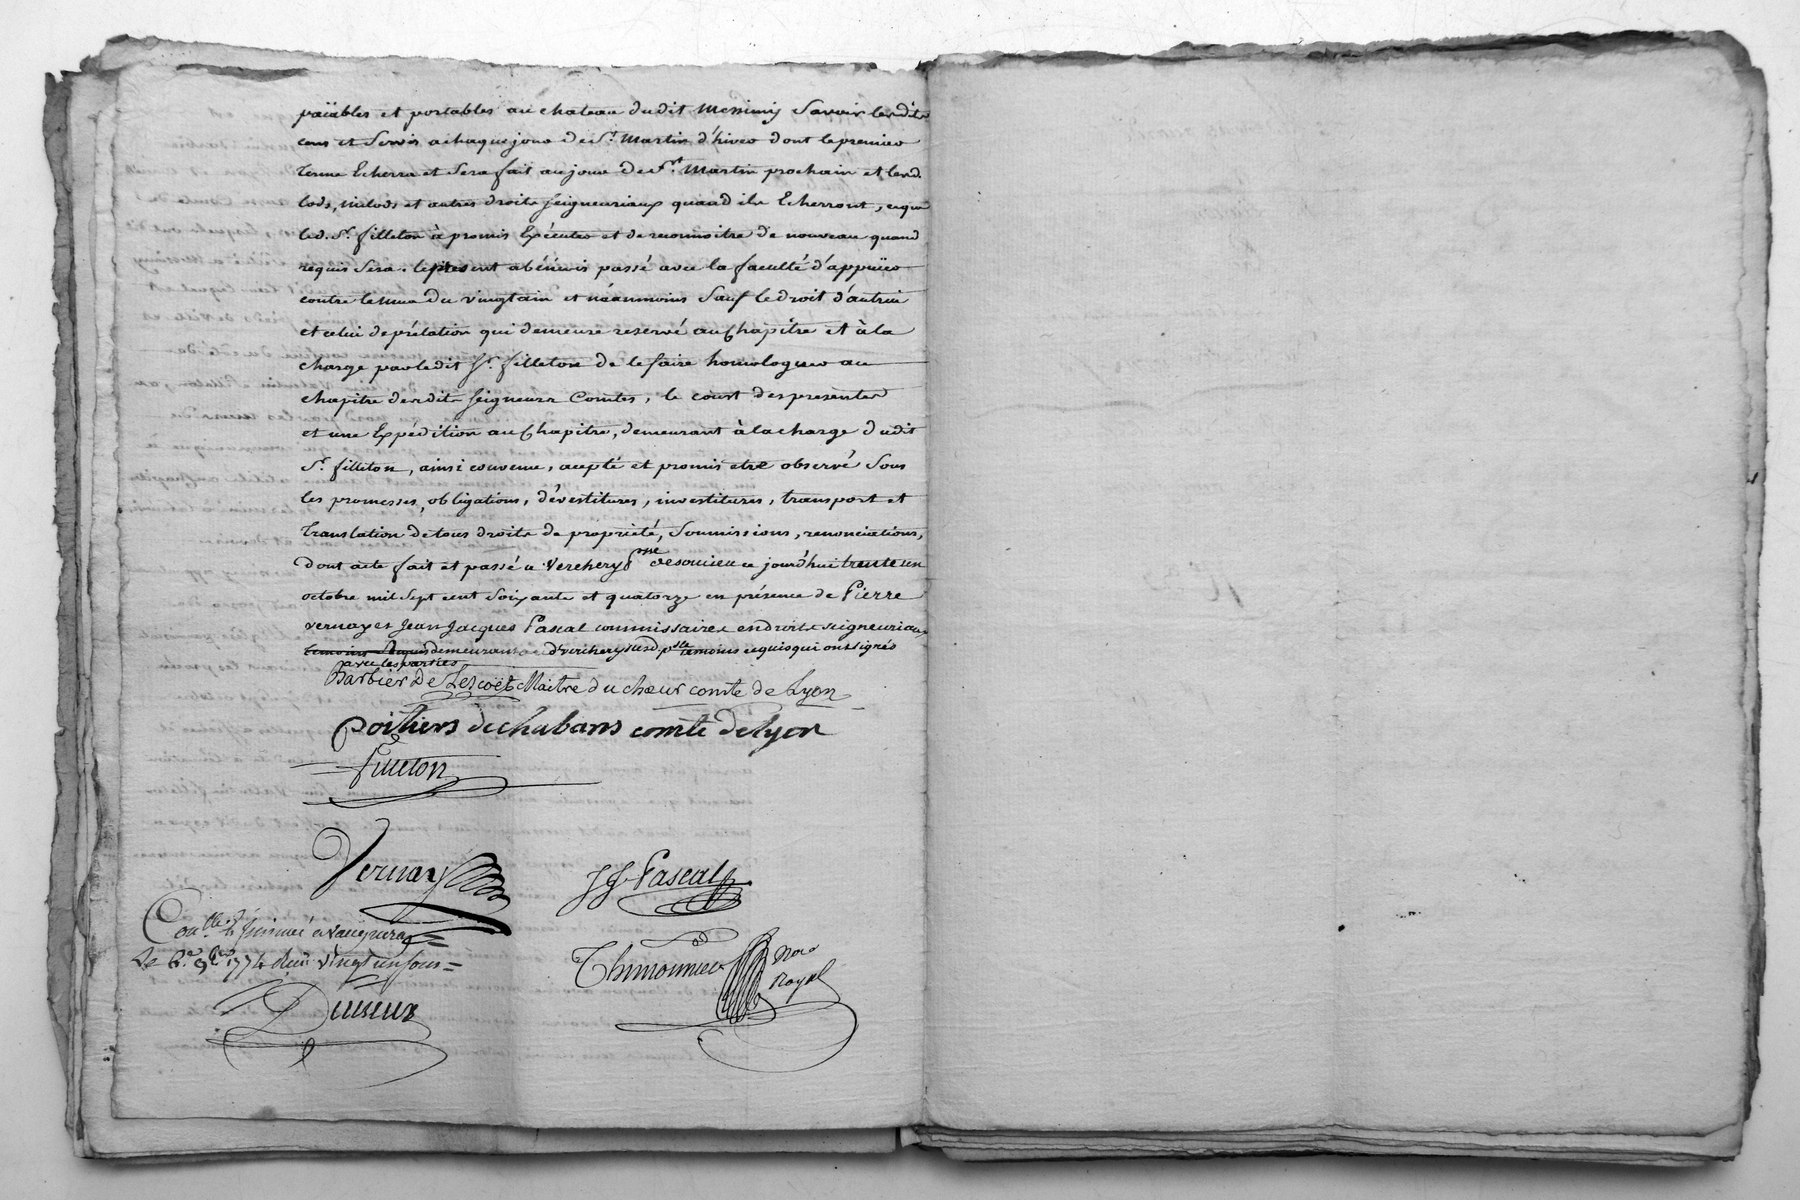 païables et portables au chateau dudit Messimy Savoir lesdits
cens et Servis a chaque jour de St. Martin d'hiver dont le premier
terme Echerra et Sera fait au jour de St. Martin prochain et lesd.
lods, milods et autres droits seigneuriaux quand ils Echerront, ce que
led. Sr. filleton à promis Exécuter et de reconnoitre de nouveau quand
requis Sera. le present abénévis passé avec la faculté d'appuïer
contre le mur du vingtain et néanmoins Sauf le droit d'autrui
et celui de prélation qui demeure reservé au Chapitre et à la
charge par ledit Sr. filleton de le faire homologuer au
chapitre desdits seigneurs Comtes, le coust des presentes
et une Expédition au Chapitre, demeurant à la charge dudit
Sr. filleton, ainsi convenu, acepté et promis etre observé Sous
les promesses, obligations, dévestitures, investitures, transport et
translation de tous droits de propriété, Soumissions, renonciations,
dont acte fait et passé a Verchery psse desoucieu ce jourd'hui trente un
octobre mil sept cent soixante et quatorze en présence de Pierre
vernay et Jean Jacques Pascal commissaires en droits seigneuriaux
temoins demeurants a d'verchery susd. psse temoins requis qui ont signés
avec les parties
Barbier De Lescoët Maitre du choeur comte de Lyon
poitiers de chabans comte de lyon
filleton
Vernay
JJ Pascal
Conllé à vaugneray
Le 6e. 9bre 1774 Reçu vingt un sous
Thimonnier Nore
Royal